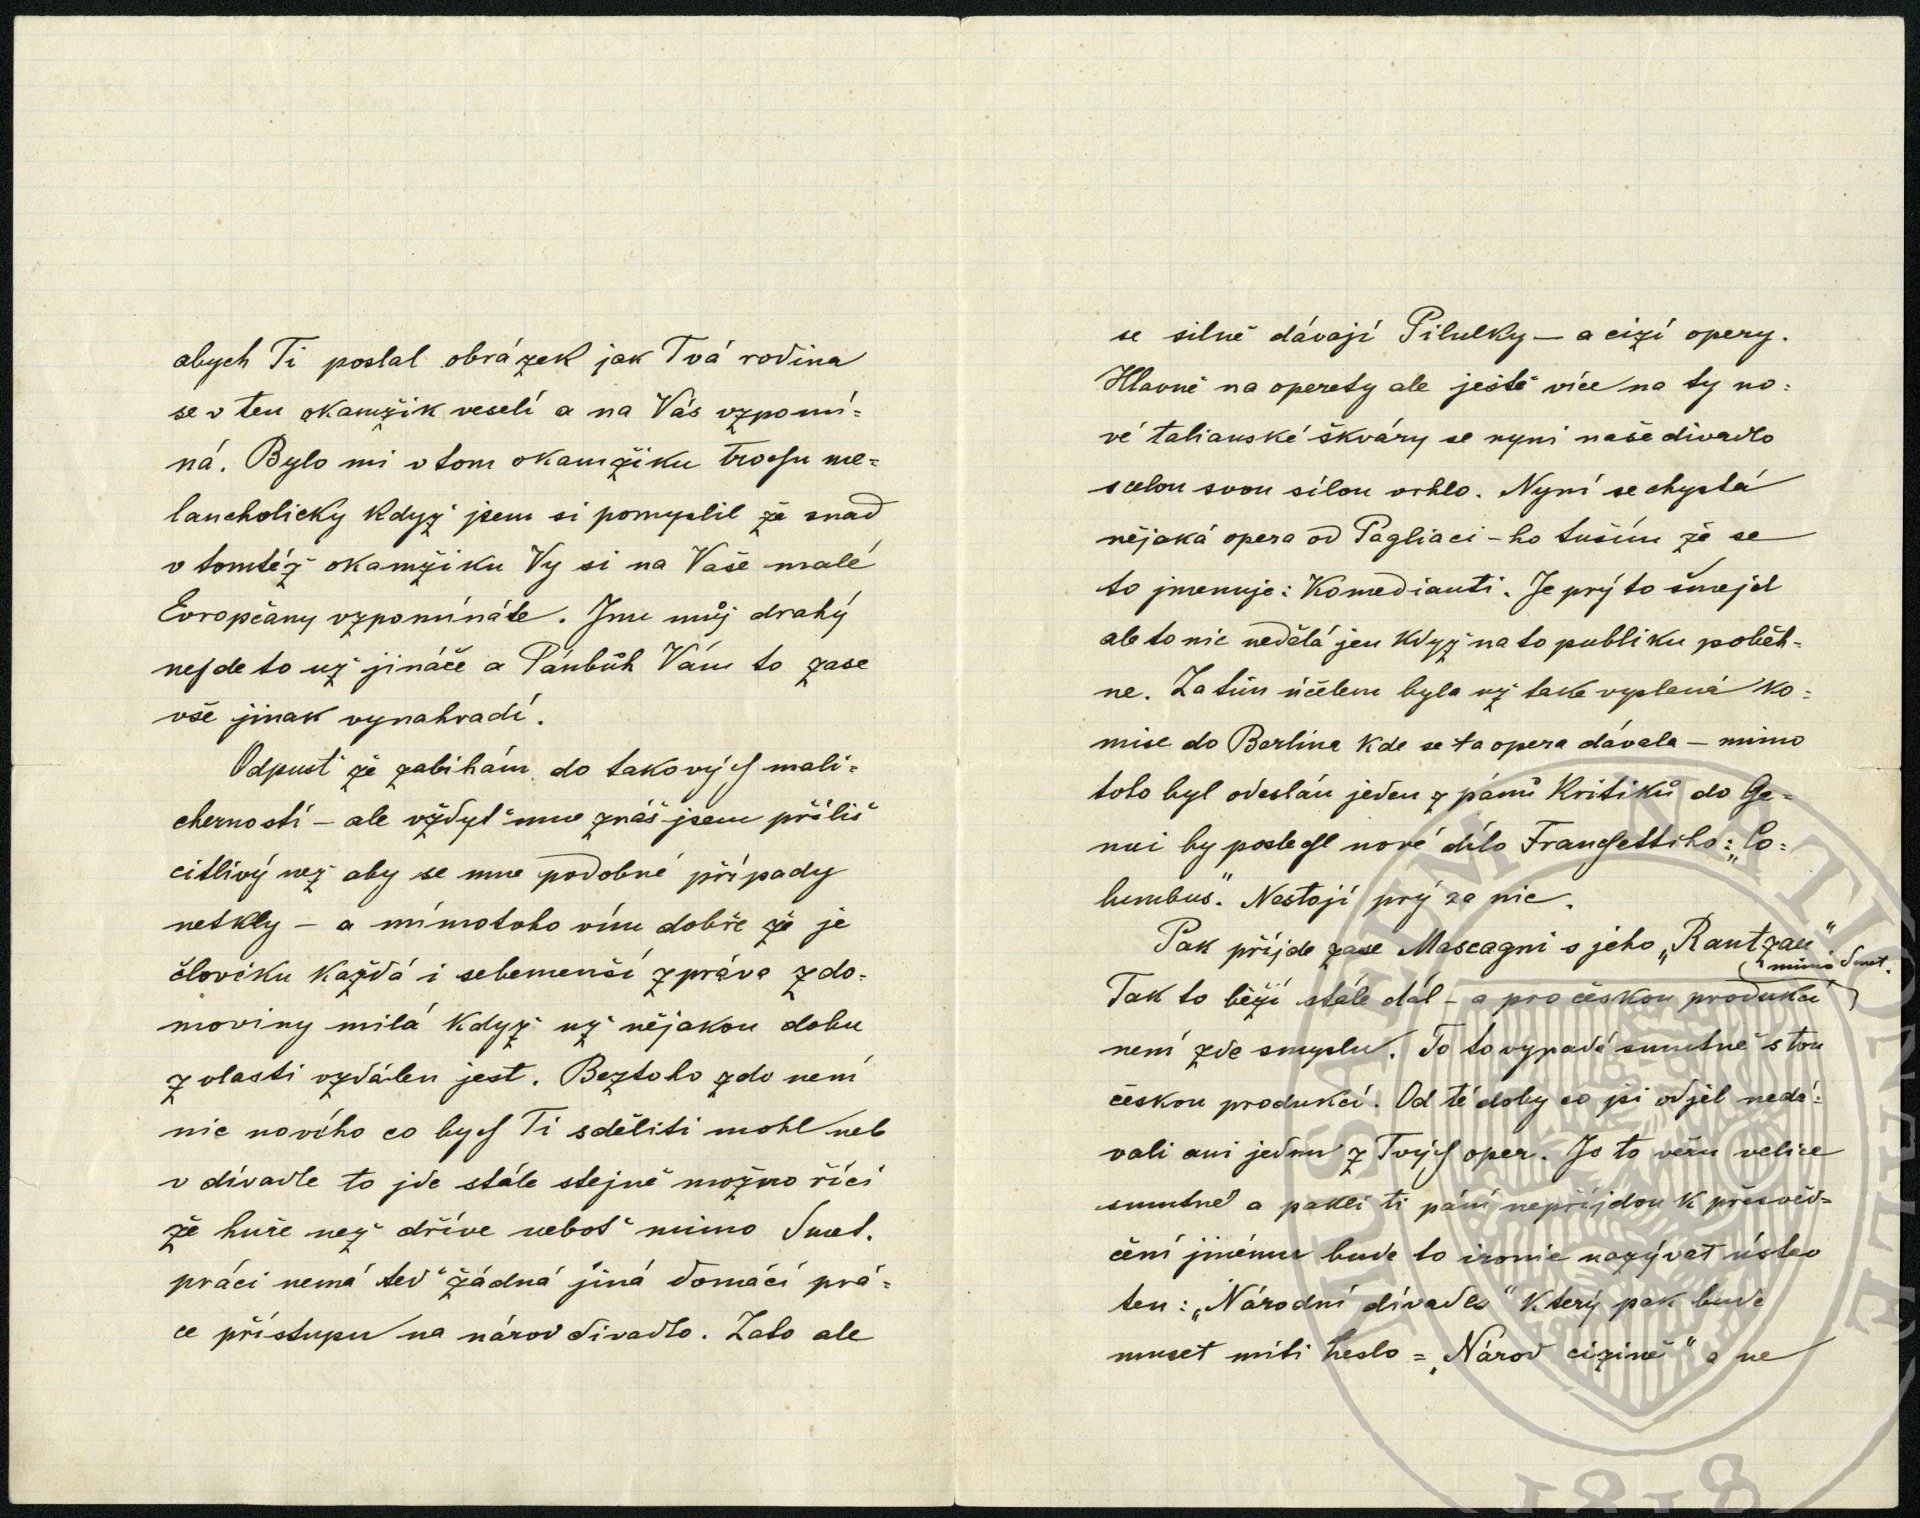 abych Ti poslal obrázek jak Tvá rodina
se v ten okamžik veselí a na Vás vzpomí=
ná. Bylo mi v tom okamžiku trochu me=
lancholicky když jsem si pomyslil že snad
v tomtéž okamžiku Vy si na Vaše malé
Evropčany vzpomínáte. Inu můj drahý
nejde to už jináče a Pánbůh Vám to zase
vše jinak vynahradí.
Odpusť že zabíhám do takových mali=
cherností – ale vždyť mne znáš jsem příliš
citlivý než aby se mne podobné případy
netkly – a mimotoho vím dobře že je
človíku každá i sebemenší zpráva z do=
moviny milá když už nějakou dobu
z vlasti vzdálen jest. Beztoho zdo není
nic nového co bych Ti sděliti mohl neb
v divadle to jde stále stejně možno říci
že huře než dříve neboť mimo Smet.
práci nemá teď žádná jiná domácí prá=
ce přístupu na národ divadlo. Zato ale
se silně dávají Pilulky – a cizí opery.
Hlavně na operety ale ještě více na ty no=
vé talianské škváry se nyní naše divadlo
s celou svou sílou vrhlo. Nyní se chystá
nějaká opera od Pagliaci-ho tuším že se
to jmenuje: Komedianti. Je prý to šmejd
ale to nic nedělá jen když na to publiku poběh=
ne. Za tím účelem byla už take vyslaná ko=
mise do Berlína kde se ta opera dávala – mimo
toho byl odeslán jeden z pánů Kritiků do Ge=
nui by poslechl nové dílo Franchettiho: „Co=
lumbus". Nestojí prý za nic.
Pak přijde zase Mascagni s jeho „Rantzau"
(mimo Smet.)
Tak to běží stále dál – a pro českou produkci
není zde smyslu. To to vypadá smutně s tou
českou produkcí. Od té doby co jsi odjel nedá=
vali ani jednu z Tvých oper. Je to věru velice
smutné a pakli ti páni nepřijdou k přesvěd=
čení jinému bude to ironie nazývat ústav
ten: „Národní divadlo" který pak bude
muset míti heslo = „Národ cizině" a ne
MUSEUM NATIONALE
1818